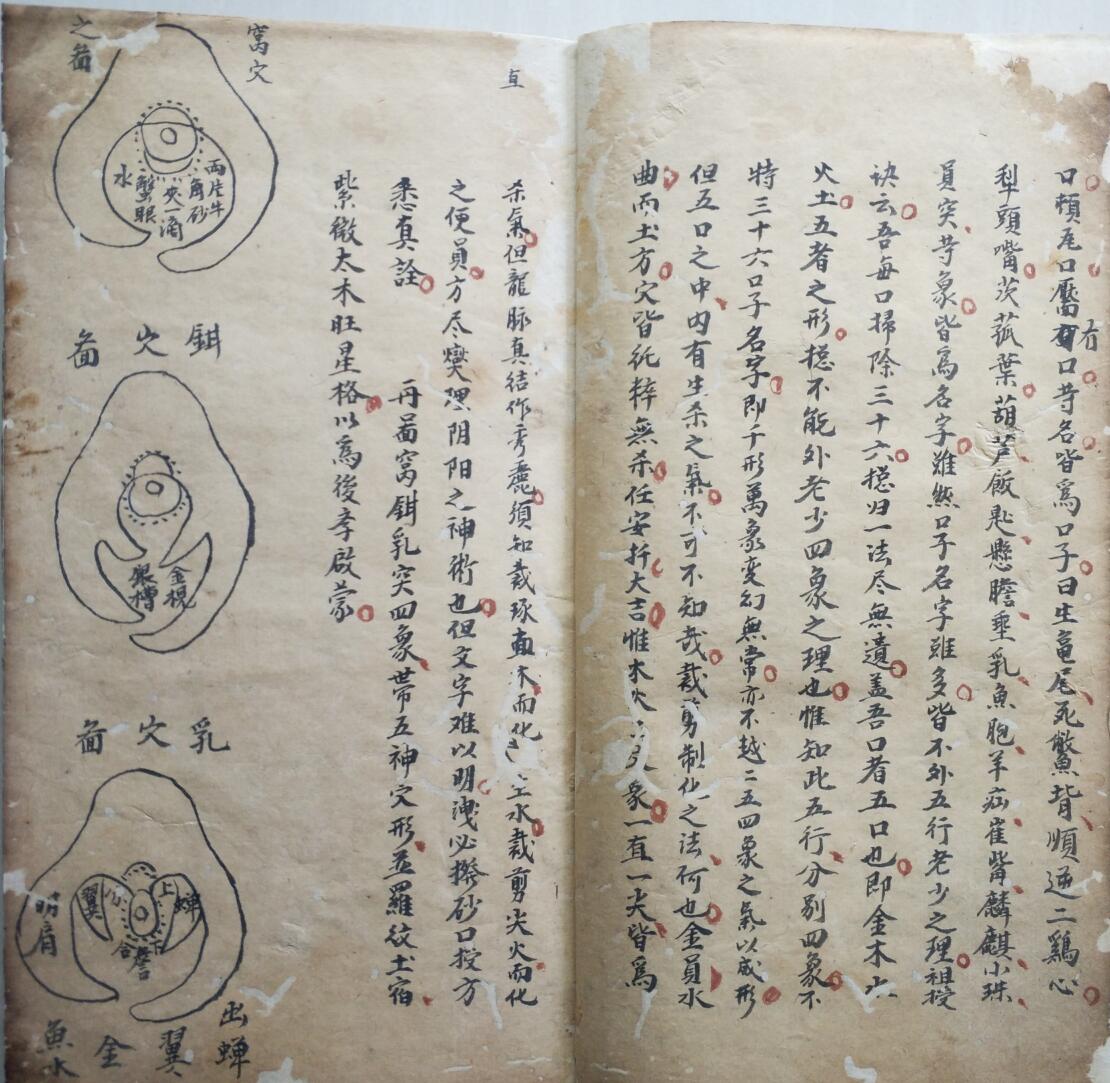 口頬尾口靥有口苛名皆爲口子曰生龜尾死鱉背順逆二鷄心
有
犁頭嘴茨菰葉葫芦飯匙懸膽垂乳魚胞羊麒麟小珠
員突苛象皆爲名字雖然口子名字雖多皆不外五行老少之理祖授
诀云吾每口掃除三十六摠归一法尽無遺盖吾口者五口也即金木水
火土五者之形摠不能外老少四象之理也惟知此五行分别四象不
特三十六口子名字即千形萬象变幻無常亦不越二五四象之氣以成形
但五口之中内有生杀之氣不可不知哉裁剪制化之法何也金員水
曲而土方穴皆纯粹無杀任安扦大吉惟木火象一直一尖皆爲
直
杀氣但龍脉真结作秀麗須知裁琢直木而化土水裁剪尖火而化
之使員方尽燮理阴阳之神術也但文字难以明洩必撥砂口授方
悉真詮
再啚窩鉗乳突四象带五神穴形並羅紋土宿
紫微太木旺星格以爲後孝啟蒙
窩穴
之啚
两片牛
角砂
夹一滴
蟹眼
水
鉗穴啚
金規
银槽
乳穴啚
上
分
蝉
翼
下
合
簷
明肩
出蝉
翼
金
魚水